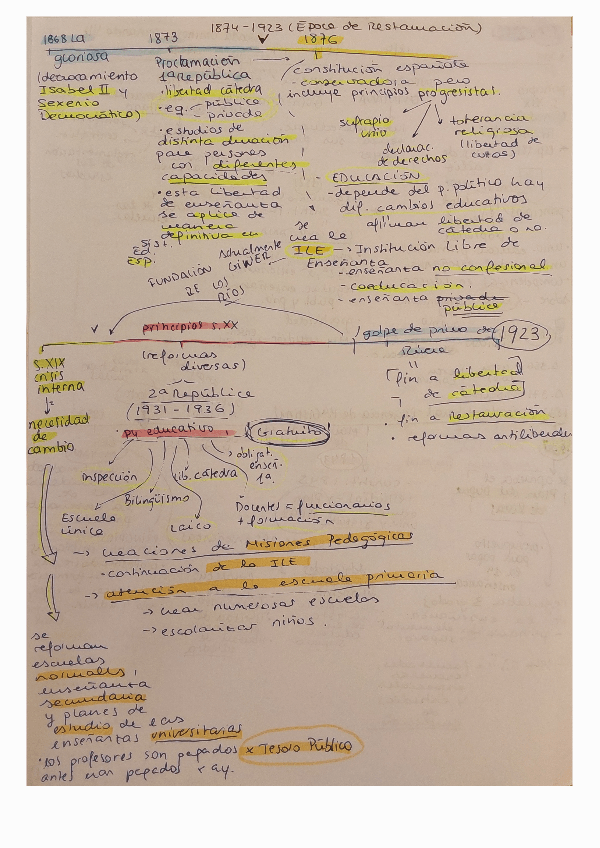 1874-1923 (Época de Restauración)
1868 La
gloriosa
(derrocamiento
Isabel II y
Sexenio
Democrático)
1873
Proclamación
1ª República
· libertad cátedra
· eq. pública
privada
· estudios de
distinta duración
para personas
con diferentes
capacidades
· esta libertad
de enseñanza
se aplica de
manera
definitiva en
Sist.
Ed.
Esp.
1876
Constitución española
- conservadora pero
incluye principios progresistas.
sufragio
univ
declarac.
de derechos
tolerancia
religiosa
(libertad de
cultos)
- EDUCACIÓN
- depende del p. político hay
dif. cambios educativos
afirman libertad de
cátedra o no.
se
crea la
ILE → Institución Libre de
Enseñanza
- enseñanza no confesional
- coeducación.
- enseñanza privada
pública
actualmente
FUNDACIÓN GINER
DE LOS
RÍOS
S.XIX
crisis
interna
necesidad
de
cambio
principios s.XX
(reformas
diversas)
2ª República
(1931-1936)
· py educativo
Gratuito
inspección
Bilingüismo
lib. cátedra
· obligat.
enseñ.
1ª.
Escuela
única
Laico
Docentes = funcionarios
+ formación
golpe de primo de 1923
Rivera
=
fin a libertad
de cátedra
· fin a Restauración
· reformas antiliberales
→ creaciones de Misiones Pedagógicas
· continuación de la ILE
→ atención a la escuela primaria
→ crear numerosas escuelas
→ escolarizar niños.
se
reforman
escuelas
normales,
enseñanza
secundaria
y planes de
estudio de las
enseñanzas universitarias
· los profesores son pagados x Tesoro Público
antes eran pagados x ay.